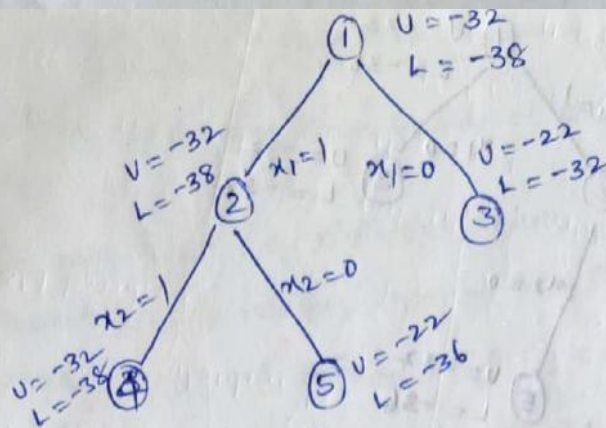 U = -32
① L = -38
U = -32
L = -38
x1=1
x1=0
U = -22
L = -32
②
③
x2=1
x2=0
U = -32
L = -38
④
⑤
U = -22
L = -36